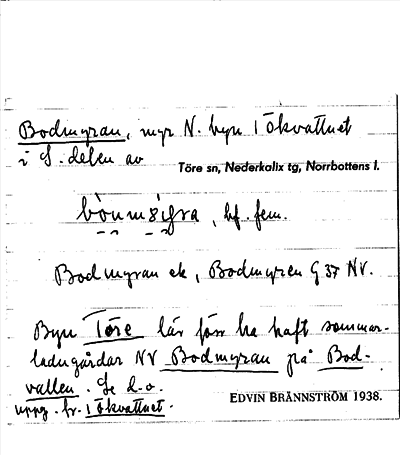 Bodmyran, myr N. byn i Ökvattnet
i S. delen av
Töre sn, Nederkalix tg, Norrbottens l.
bf. fem.
Bodmyran ek, Bodmyren G 37 NV.
Byn Töre lär förr ha haft sommar-
ladugårdar NV Bodmyran på Bod-
vallen. Se d.o.
uppg. fr. i Ökvattnet.
EDVIN BRÄNNSTRÖM 1938.